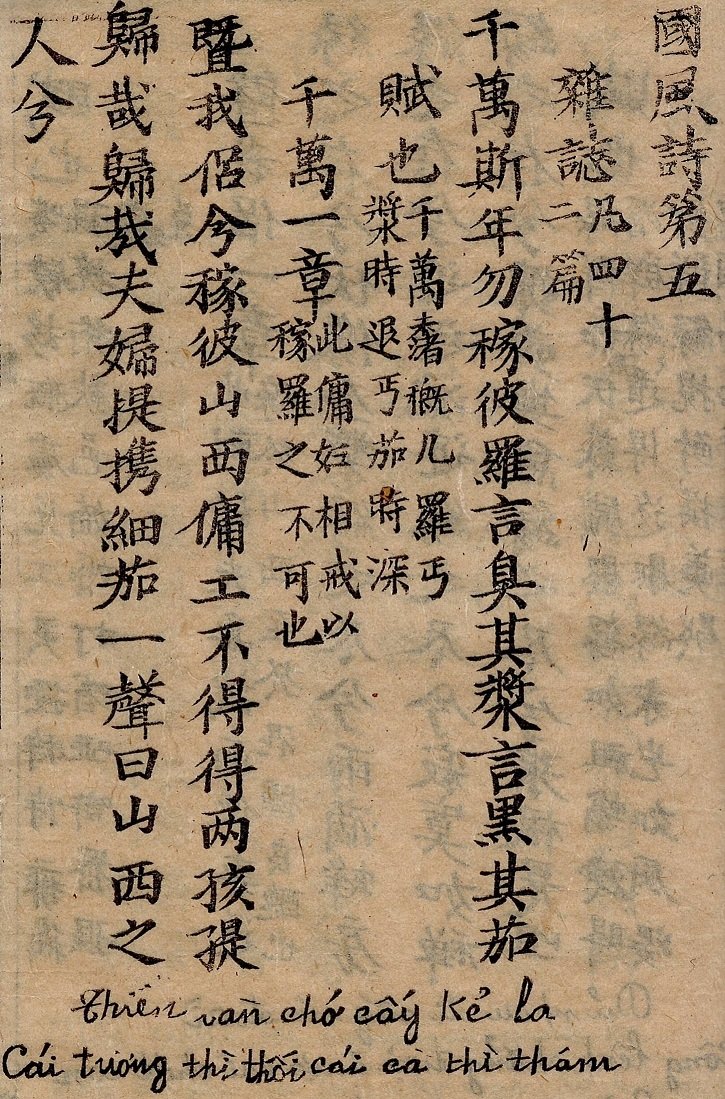 國風詩第五
雜誌凡四十
二篇
千萬斯年勿稼彼羅言臭其漿言黑其茄
賦也千萬概几羅丐
漿時退丐茄時深
千萬一章此傭妇相戒以
稼羅之不可也
暨我侶兮稼彼山西傭工不得得两孩
歸哉歸哉夫婦提携細茄一聲曰山西之
人兮
thiên vàn chớ cấy kẻ la
Cái tương thì thối cái cà thì thám